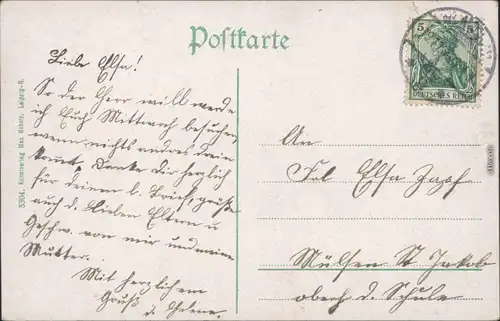 Postkarte
Liebe Elsa!
So der Herr will werde
ich Euch Mittwoch besuchen,
wenn nichts andres drein
kommt. Danke dir herzlich
für deinen l. Brief, grüße
auch d. lieben Eltern u
Geschw. von mir und meine
Mutter.
Mit herzlichem
Gruß
d. Helene.
5
5
DEUTSCHES REICH
An
Frl Elsa Zapf
Mülsen St Jakob
oberh d. Schule
5304. Kunstverlag Leipzig-R.